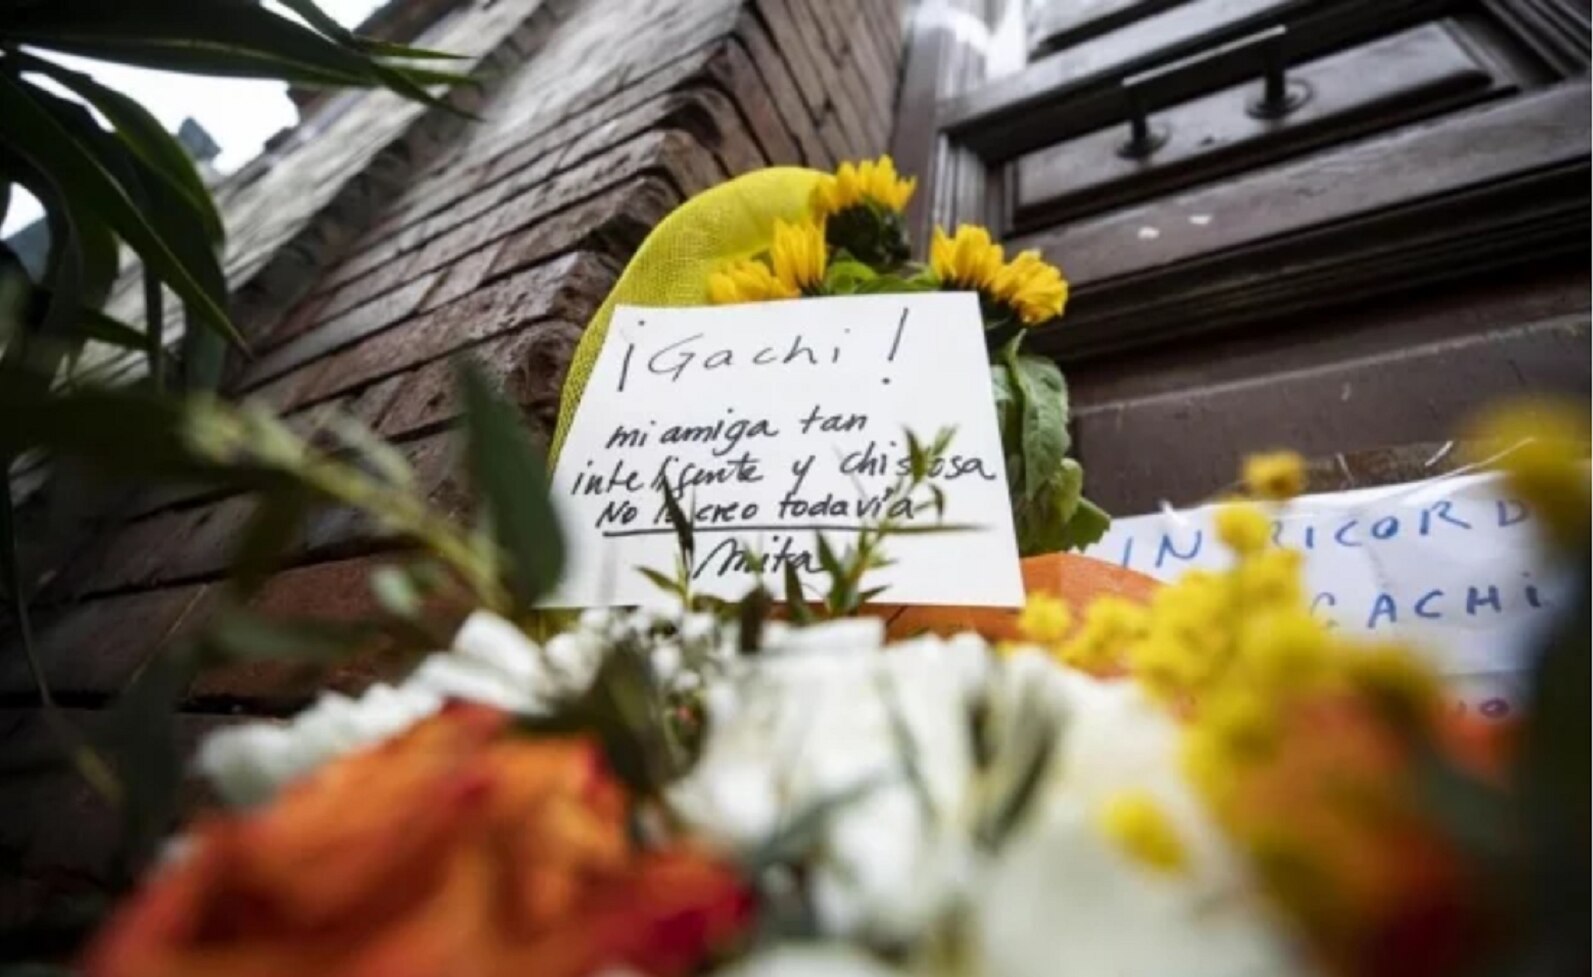 ¡Gachi!
mi amiga tan
inteligente y chistosa
No lo creo todavía
Anita
IN RICORD
GACHi